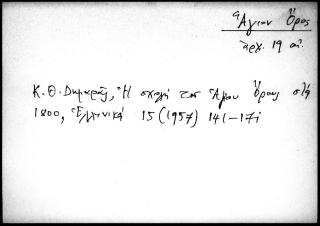 Ἅγιον Ὄρος
ἀρχ. 19 αἰ.
Κ. Θ. Δημαρᾶς, Ἡ σχολὴ τοῦ Ἁγίου Ὄρους στὰ
1800, Ἑλληνικά 15 (1957) 141-17